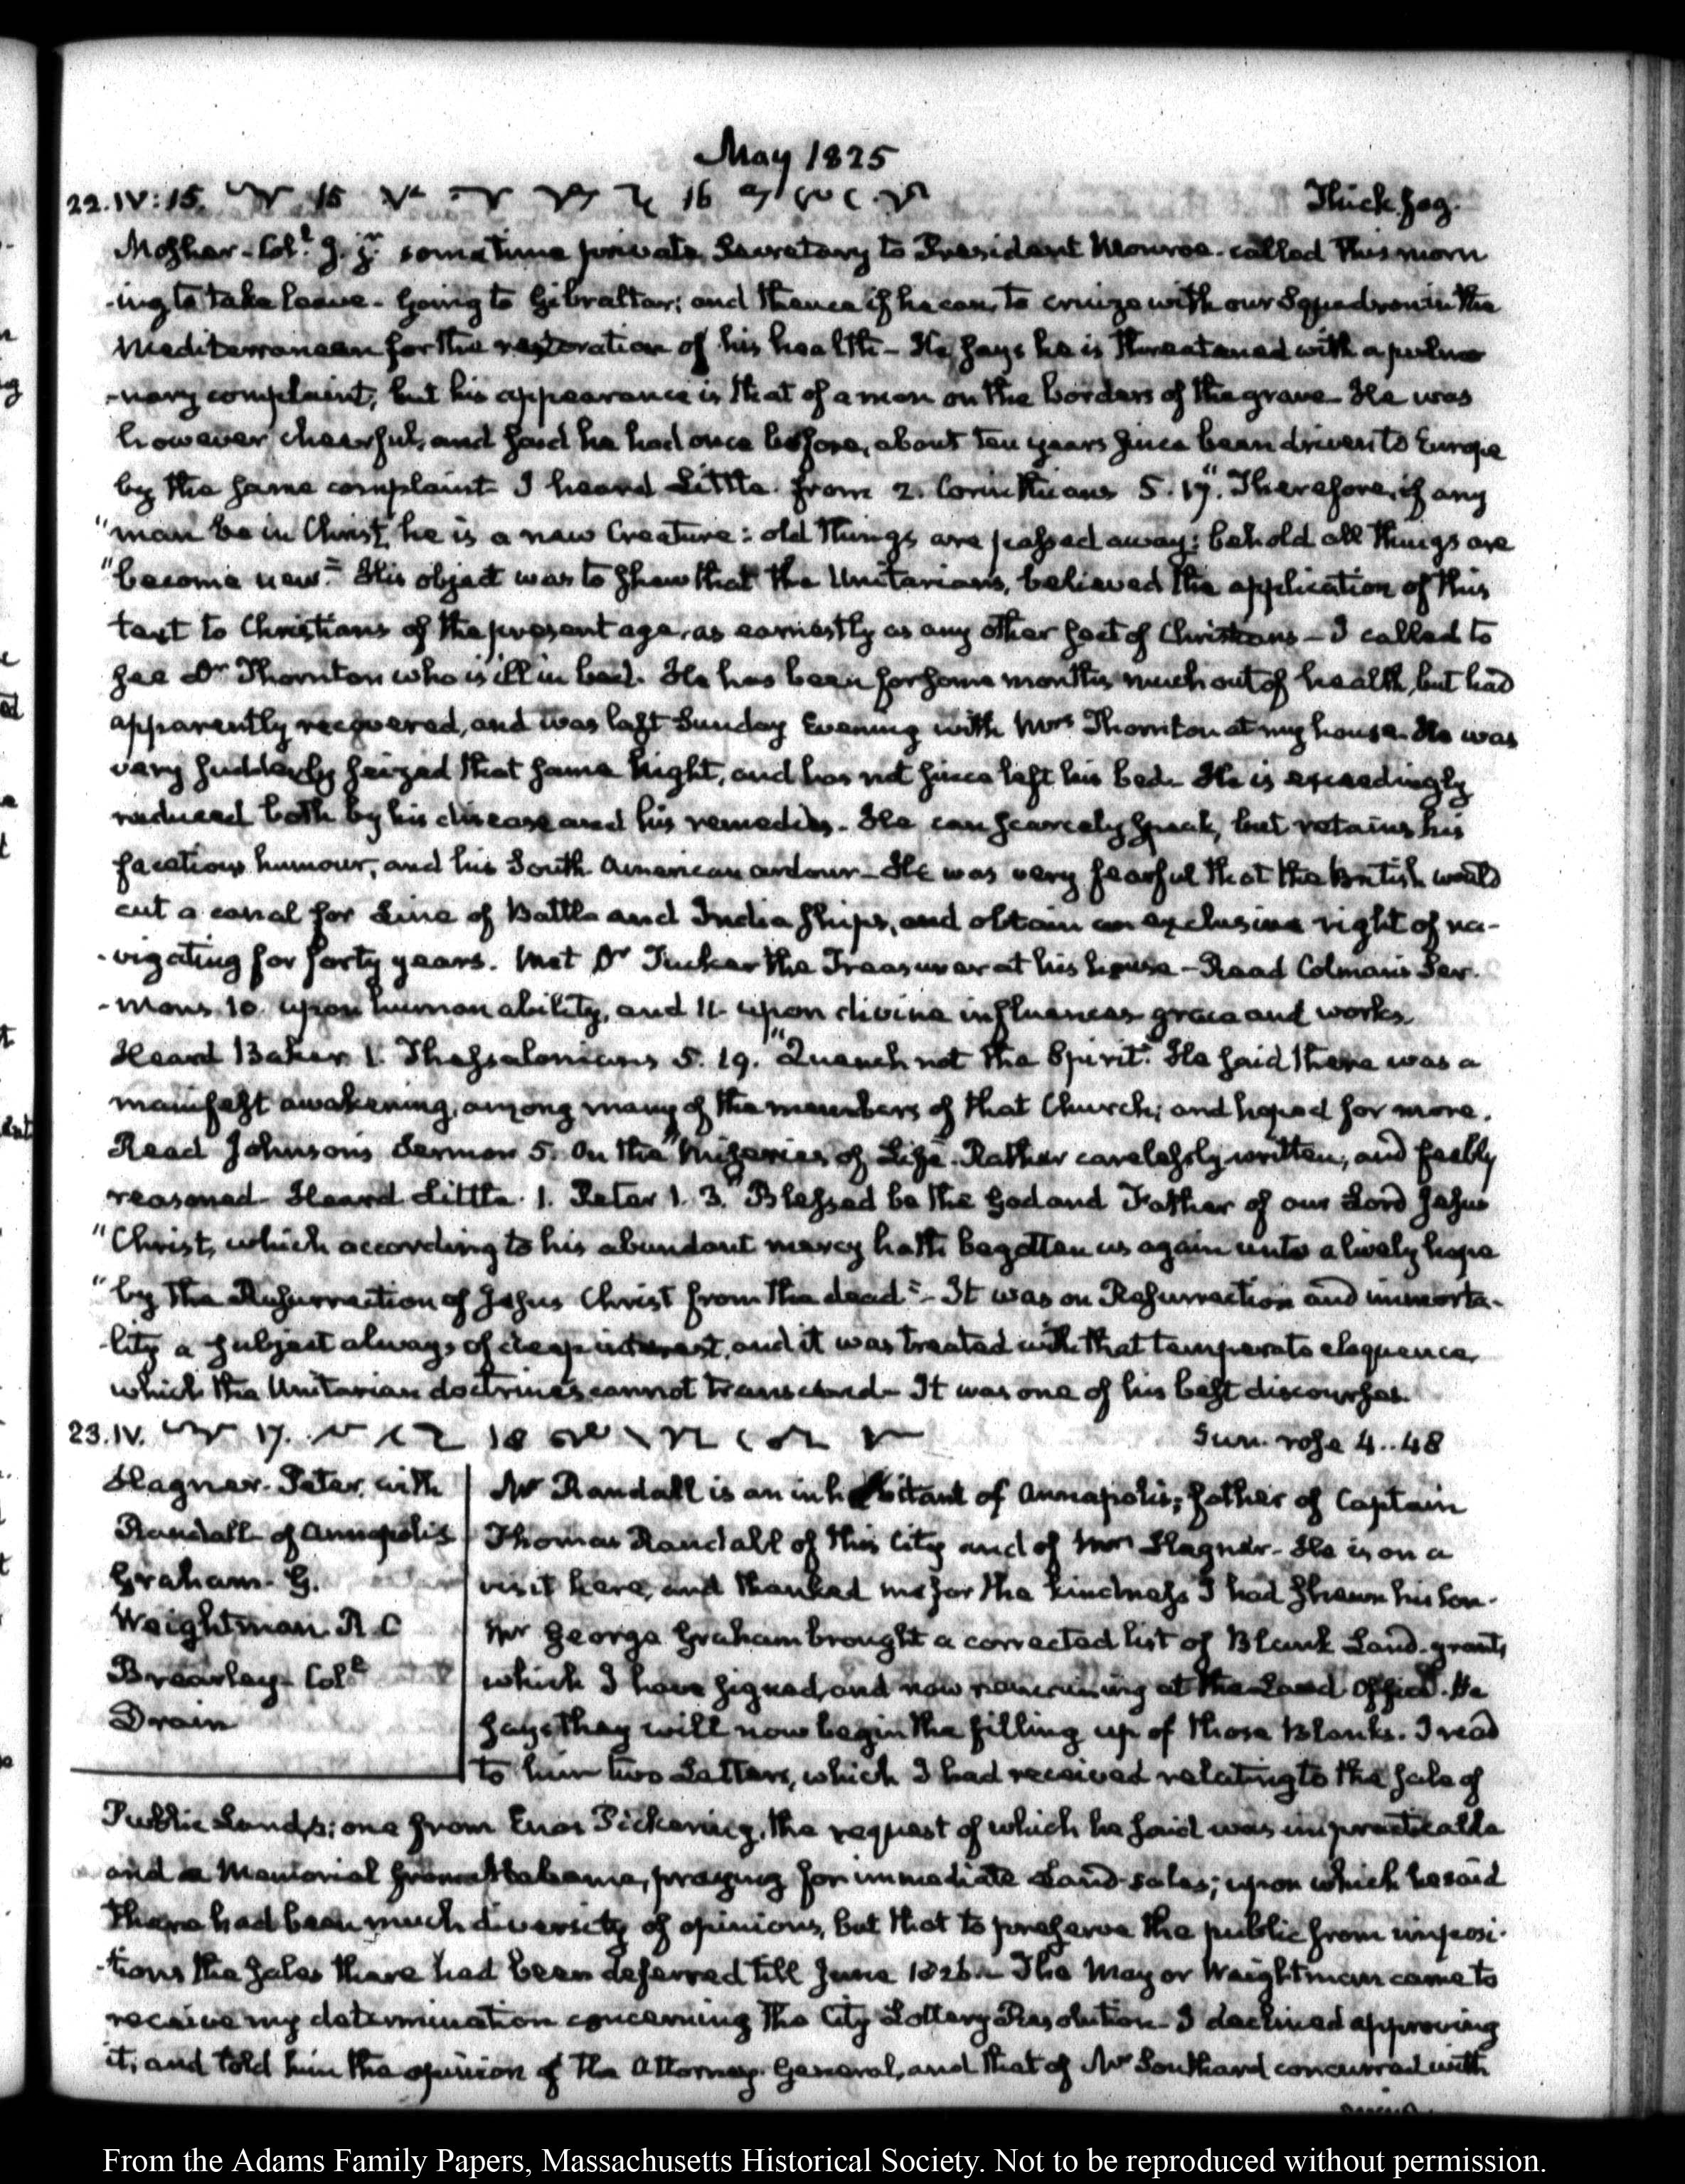 May 1825
22. IV: 15. 15 16 Thick fog.
Mosher – Col.l J. jr. sometime private Secretary to President Monroe – called this morn
-ing to take leave – Going to Gibraltar; and thence if he can, to cruize with our Squadron in the
Mediterranean for the restoration of his health – He says he is threatened with a pulmo
-nary complaint, but his appearance is that of a man on the borders of the grave – He was
however cheerful, and said he had once before, about ten years since been driven to Europe
by the same complaint – I heard Little from 2. Corinthians 5. 17. "Therefore, if any
"man be in Christ, he is a new Creature: old things are passed away: behold all things are
"become new." His object was to shew that the Unitarians, believed the application of this
text to Christians of the present age, as earnestly as any other sect of Christians – I called to
see Dr Thornton who is ill in bed. He has been for some months much out of health, but had
apparently recovered, and was last Sunday Evening with Mrs Thornton at my house. He was
very suddenly seized that same Night, and has not since left his bed. He is exceedingly
reduced both by his disease and his remedies. He can scarcely speak, but retains his
facetious humour, and his South American ardour – He was very fearful that the British would
cut a canal for Line of Battle and India ships, and obtain an exclusive right of na-
-vigating for forty years. Met Dr Tucker the Treasurer at his house – Read Colman's Ser.
-mons 10. upon human ability, and 11. upon divine influences grace and works.
Heard Baker 1. Thessalonians 5. 19. "Quench not the Spirit." He said there was a
manifest awakening, among many of the members of that Church; and hoped for more.
Read Johnson's Sermon 5. On the "Miseries of Life". Rather carelessly written, and feebly
reasoned – Heard Little 1. Peter 1. 3. "Blessed be the God and Father of our Lord Jesus
"Christ, which according to his abundant mercy hath begotten us again unto a lively hope
"by the Resurrection of Jesus Christ from the dead" – It was on Resurrection and immorta-
-lity a subject always of deep interest, and it was treated with that temperate eloquence,
which the Unitarian doctrines cannot transcend – It was one of his best discourses.
23. IV. 17. 18 Sun rose 4..48
Hagner. Peter, with
Randall of Annapolis
Graham – G.
Weightman R C
Brearley – Col.l
Drain
Mr Randall is an inhabitant of Annapolis; father of Captain
Thomas Randall of this City and of Mrs Hagner – He is on a
visit here, and thanked me for the kindness I had shewn his Son.
Mr George Graham brought a corrected list of Blank Land-grants
which I have signed, and now remaining at the Land Office. He
says they will now begin the filling up of those Blanks. I read
to him two Letters, which I had received relating to the sale of
Public Lands; one from Enos Pickering, the request of which he said was impracticable
and a Memorial from Alabama, praying for immediate Land-sales; upon which he said
there had been much diversity of opinions, but that to preserve the public from imposi-
-tions the sales there had been deferred till June 1826 – The Mayor Weightman came to
receive my determination concerning the City Lottery Resolution – I declined approving
it, and told him the opinion of the Attorney General, and that of Mr Southard concurred with
From the Adams Family Papers, Massachusetts Historical Society. Not to be reproduced without permission.